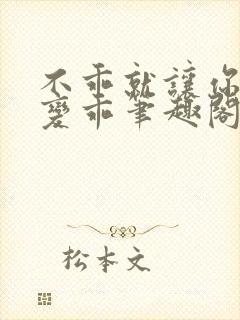 不乖就讓你
變乖筆趣閣
松本文